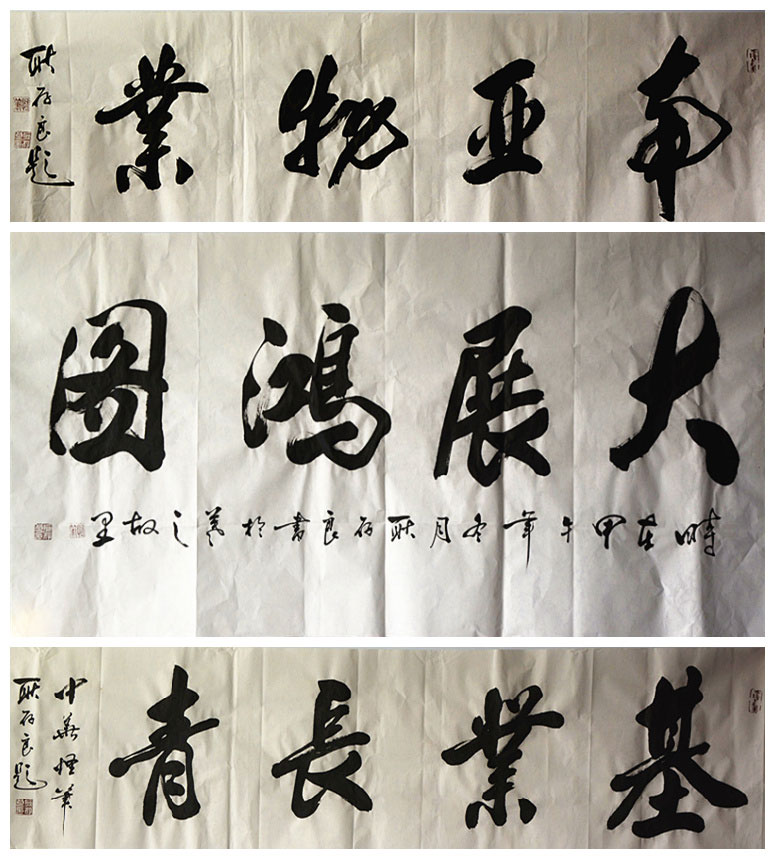 南亚物業
耿存良題
大展鴻图
時在甲午年冬月耿存良書於羲之故里
基業長青
中華怪筆
耿存良題